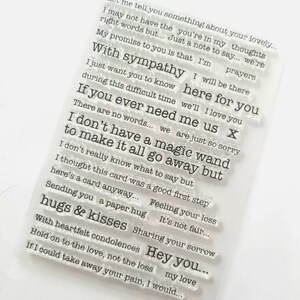 me tell you something about your lovely...
I may not have the you're in my thoughts
right words but... Just a note to say... we're
My promise to you is that I'm prayers
With sympathy I will be there
I just want you to know here for you
during this difficult time we'll I love you
If you ever need me us x
There are no words... we are just so sorry
I don't have a magic wand
to make it all go away but
I don't really know what to say but
I thought this card was a good first step
here's a card anyway... Feeling your loss
Sending you a paper hug It's not fair...
hugs & kisses Sharing your sorrow
With heartfelt condolences Hey you...
Hold on to the love, not the loss my love
If I could take away your pain, I would...